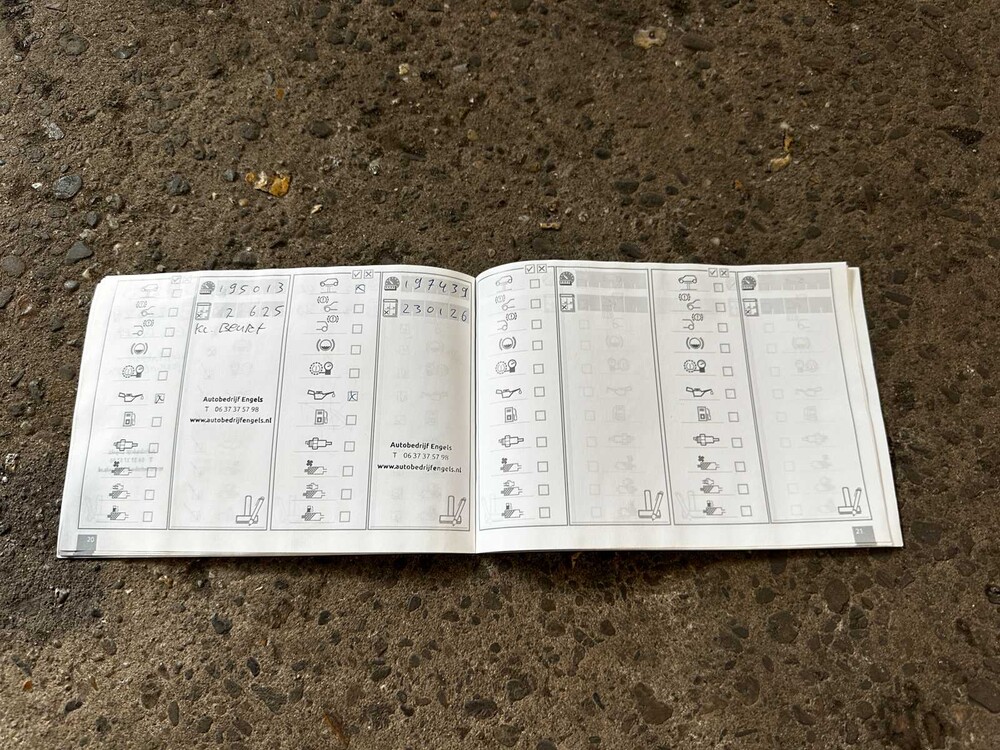 195013
2 625
KL. BEURT
Autobedrijf Engels
T 06 37 37 57 98
www.autobedrijfengels.nl
197439
230126
Autobedrijf Engels
T 06 37 37 57 98
www.autobedrijfengels.nl
20
21